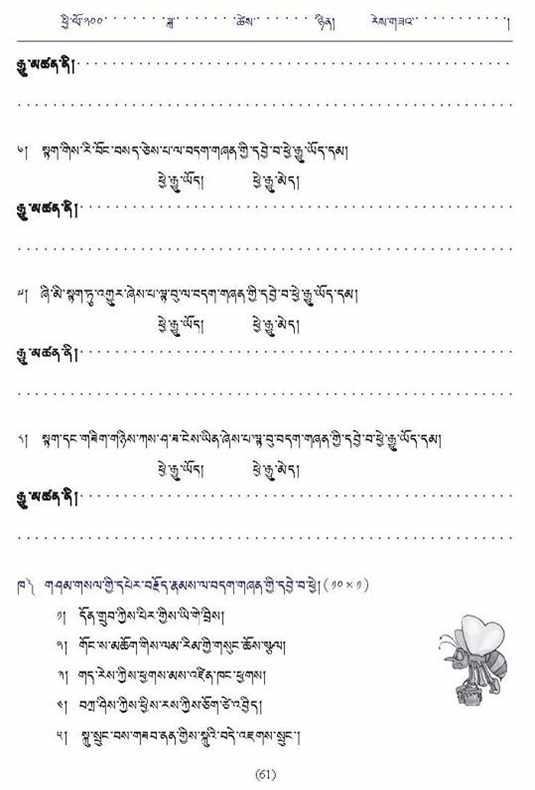 ཕྱི་ལོ་༢༠༠········ཟླ་········ཚེས་········ཉིན། རེས་གཟའ་············།
རྒྱུ་མཚན་ནི།
༦། སྟག་གིས་རི་བོང་བསད་ཅེས་པ་ལ་བདག་གཞན་གྱི་དབྱེ་བ་ཕྱེ་རྒྱུ་ཡོད་དམ།
ཕྱེ་རྒྱུ་ཡོད། ཕྱེ་རྒྱུ་མེད།
རྒྱུ་མཚན་ནི།
༧། ཞི་མི་སྟག་ཏུ་འགྱུར་ཞེས་པ་ལྟ་བུ་ལ་བདག་གཞན་གྱི་དབྱེ་བ་ཕྱེ་རྒྱུ་ཡོད་དམ།
ཕྱེ་རྒྱུ་ཡོད། ཕྱེ་རྒྱུ་མེད།
རྒྱུ་མཚན་ནི།
༨། སྟག་དང་གཟིག་གཉིས་ཀས་ཤ་ཟ་ངེས་ཡིན་ཞེས་པ་ལྟ་བུ་བདག་གཞན་གྱི་དབྱེ་བ་ཕྱེ་རྒྱུ་ཡོད་དམ།
ཕྱེ་རྒྱུ་ཡོད། ཕྱེ་རྒྱུ་མེད།
རྒྱུ་མཚན་ནི།
ཁ༽ གཤམ་གསལ་གྱི་དཔེར་བརྗོད་རྣམས་ལ་བདག་གཞན་གྱི་དབྱེ་བ་ཕྱེ། (༡༠×༡)
༡། དོན་གྲུབ་ཀྱིས་པིར་གྱིས་ཡི་གེ་བྲིས།
༢། གོང་ས་མཆོག་གིས་ལམ་རིམ་གྱི་གསུང་ཆོས་སྩལ།
༣། གད་རེས་ཀྱིས་ཕྱགས་མས་འཛིན་ཁང་ཕྱགས།
༤། བཀྲ་ཤིས་ཀྱིས་ཕྱིས་རས་ཀྱིས་ཅོག་ཙེ་འབྱིད།
༥། སྐུ་སྲུང་བས་གཟབ་ནན་གྱིས་སྐུའི་བདེ་འཇགས་སྲུང་།
(61)